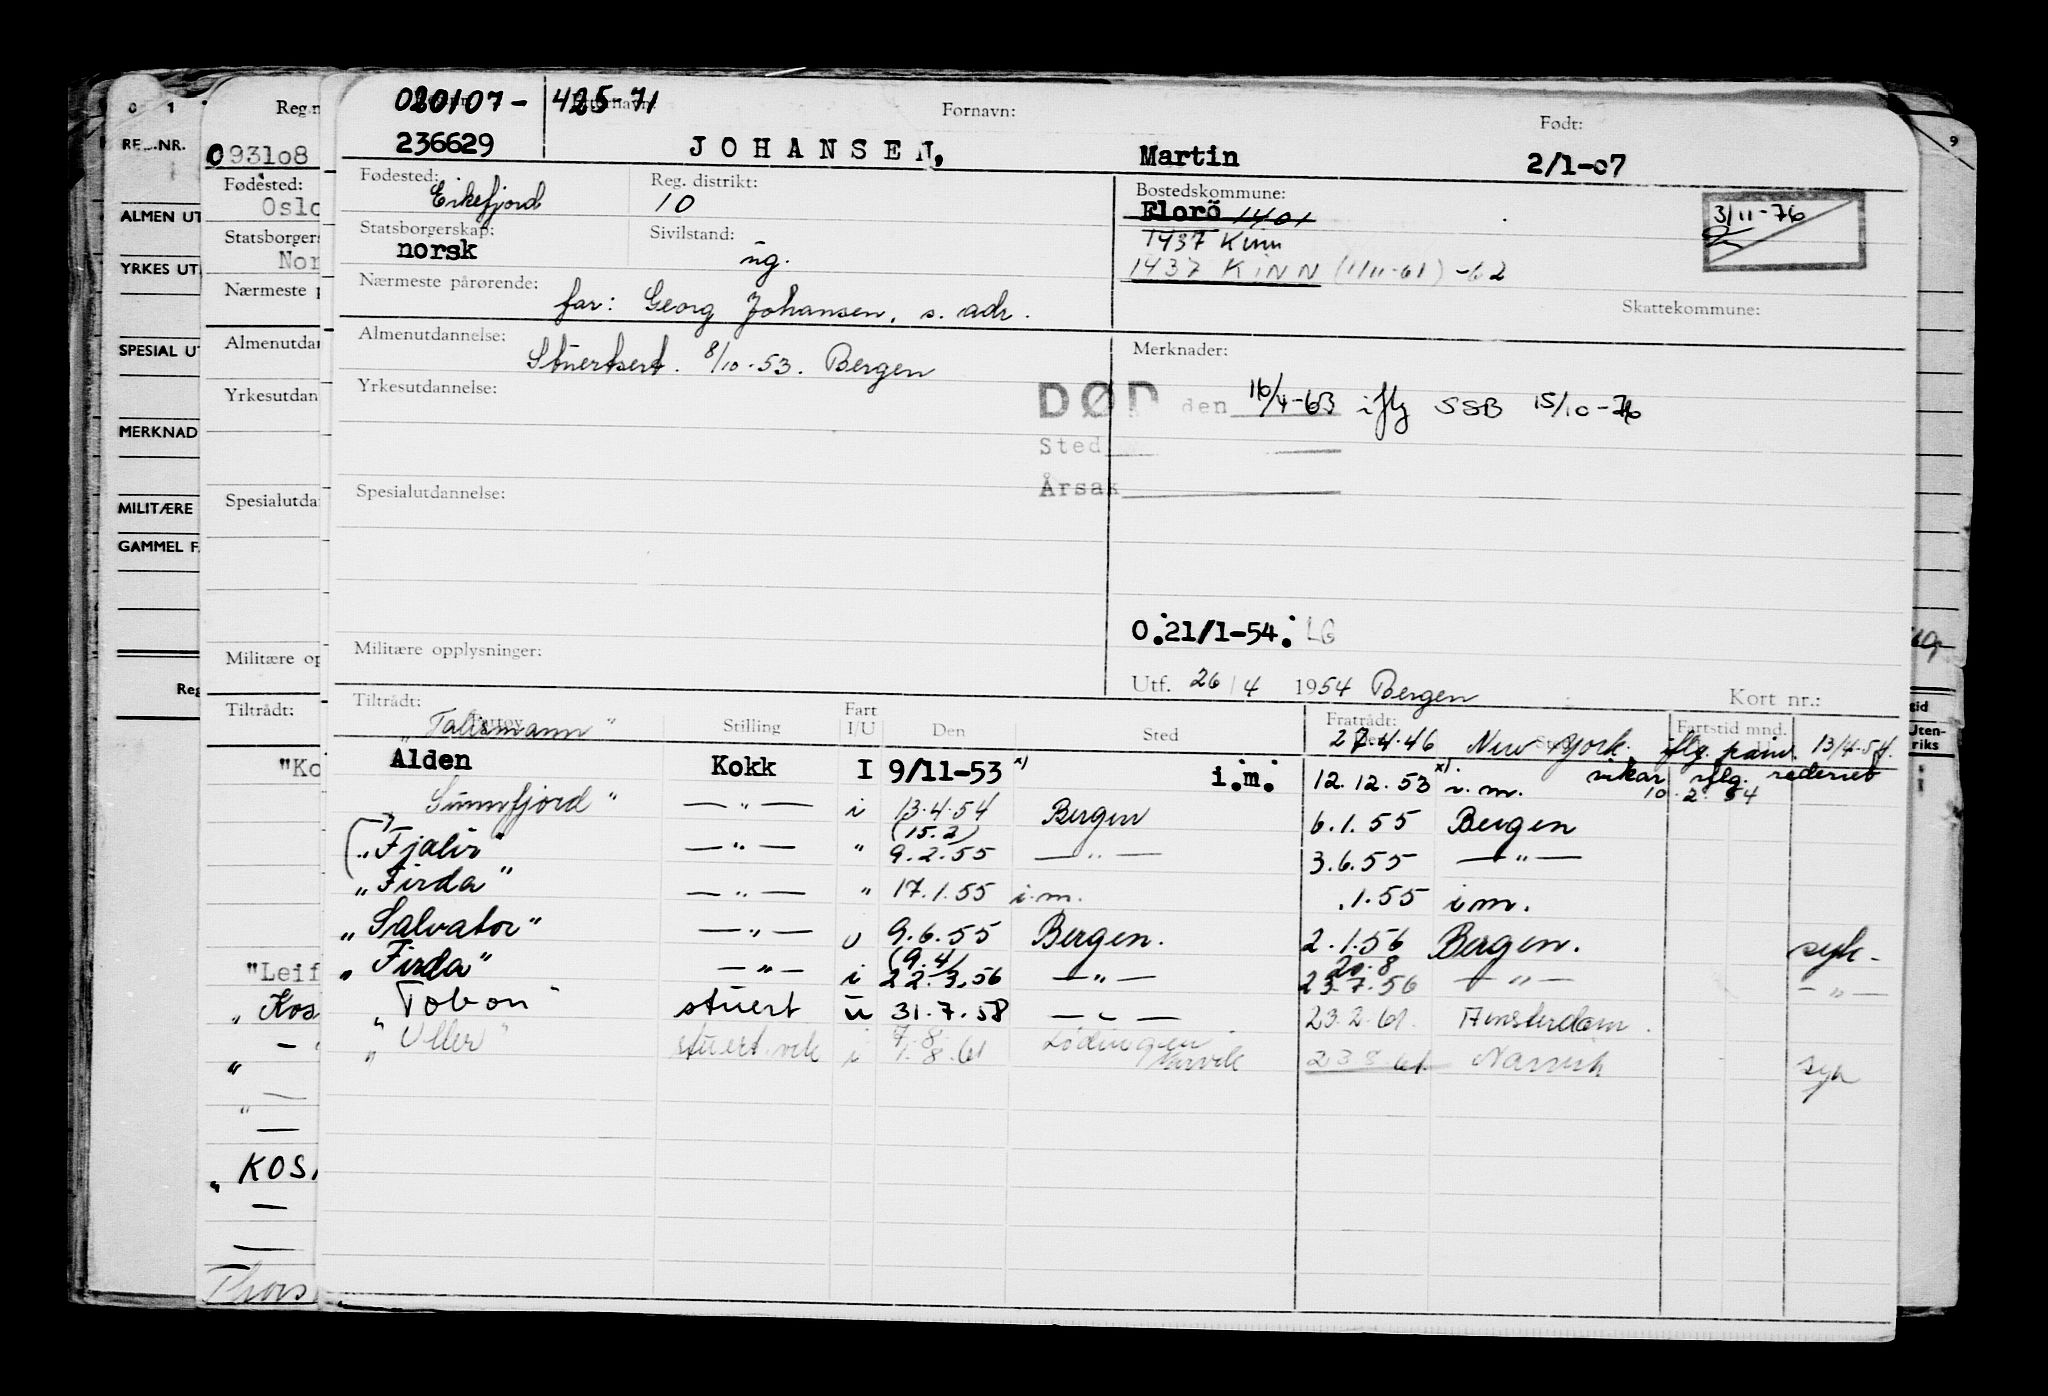 020107- 425-71 Fornavn: Født:
236629 JOHANSEN, Martin 2/1-07
Fødested: Eikefjord Reg. distrikt: 10 Bostedskommune: Florö 1401
3/11-76
Statsborgerskap: norsk Sivilstand: ug. 1437 Kinn
1437 KINN (1/11-61) -62
Nærmeste pårørende: far: Georg Johansen, s. adr. Skattekommune:
Almenutdannelse: Stuertsert. 8/10-53. Bergen Merknader:
Yrkesutdannelse: DØD den 16/4-63 iflg SSB 15/10-76
Sted
Årsak
Spesialutdannelse:
O.21/1-54. LG
Militære opplysninger:
Utf. 26/4 1954 Bergen Kort nr.:
Tiltrådt: Fart Fratrådt: Fartstid mnd.
"Talismann" Stilling I/U Den Sted 27.4.46 New York. iflg. 13/4-54.
Alden Kokk I 9/11-53 x) i.m. 12.12.53 x) i.m. vikar iflg. rederiet 10.2.54
"Sunnfjord" —"— i 13.4.54 Bergen 6.1.55 Bergen
"Fjalir" —"— " (15.2) 9.2.55 —"— 3.6.55 —"—
"Firda" —"— " 17.1.55 i.m. .1.55 i.m.
"Salvator" —"— u 9.6.55 Bergen. 2.1.56 Bergen. syk-
"Firda" —"— i (9.4) 22.3.56 —"— 20.8 23.7.56 —"— —"—
"Tobon" stuert u 31.7.58 —"— 23.2.61. Amsterdam.
"Uller" stuert.vik i 7.8. 7.8.61 Lødingen Narvik 23.8.61. Narvik syk
0 1
REG.NR.
ALMEN UT
YRKES UT
SPESIAL UT
MERKNAD
MILITÆRE
GAMMEL F
Reg
Reg.n
093108
Fødested:
Oslo
Statsborgers
Nor
Nærmeste p
Almenutdan
Yrkesutdan
Spesialutda
Militære op
Tiltrådt:
"Ko
"Leif
"Kos
"—
"—
—
"KOS
—
—
Thors
9
tid
Uten-
riks